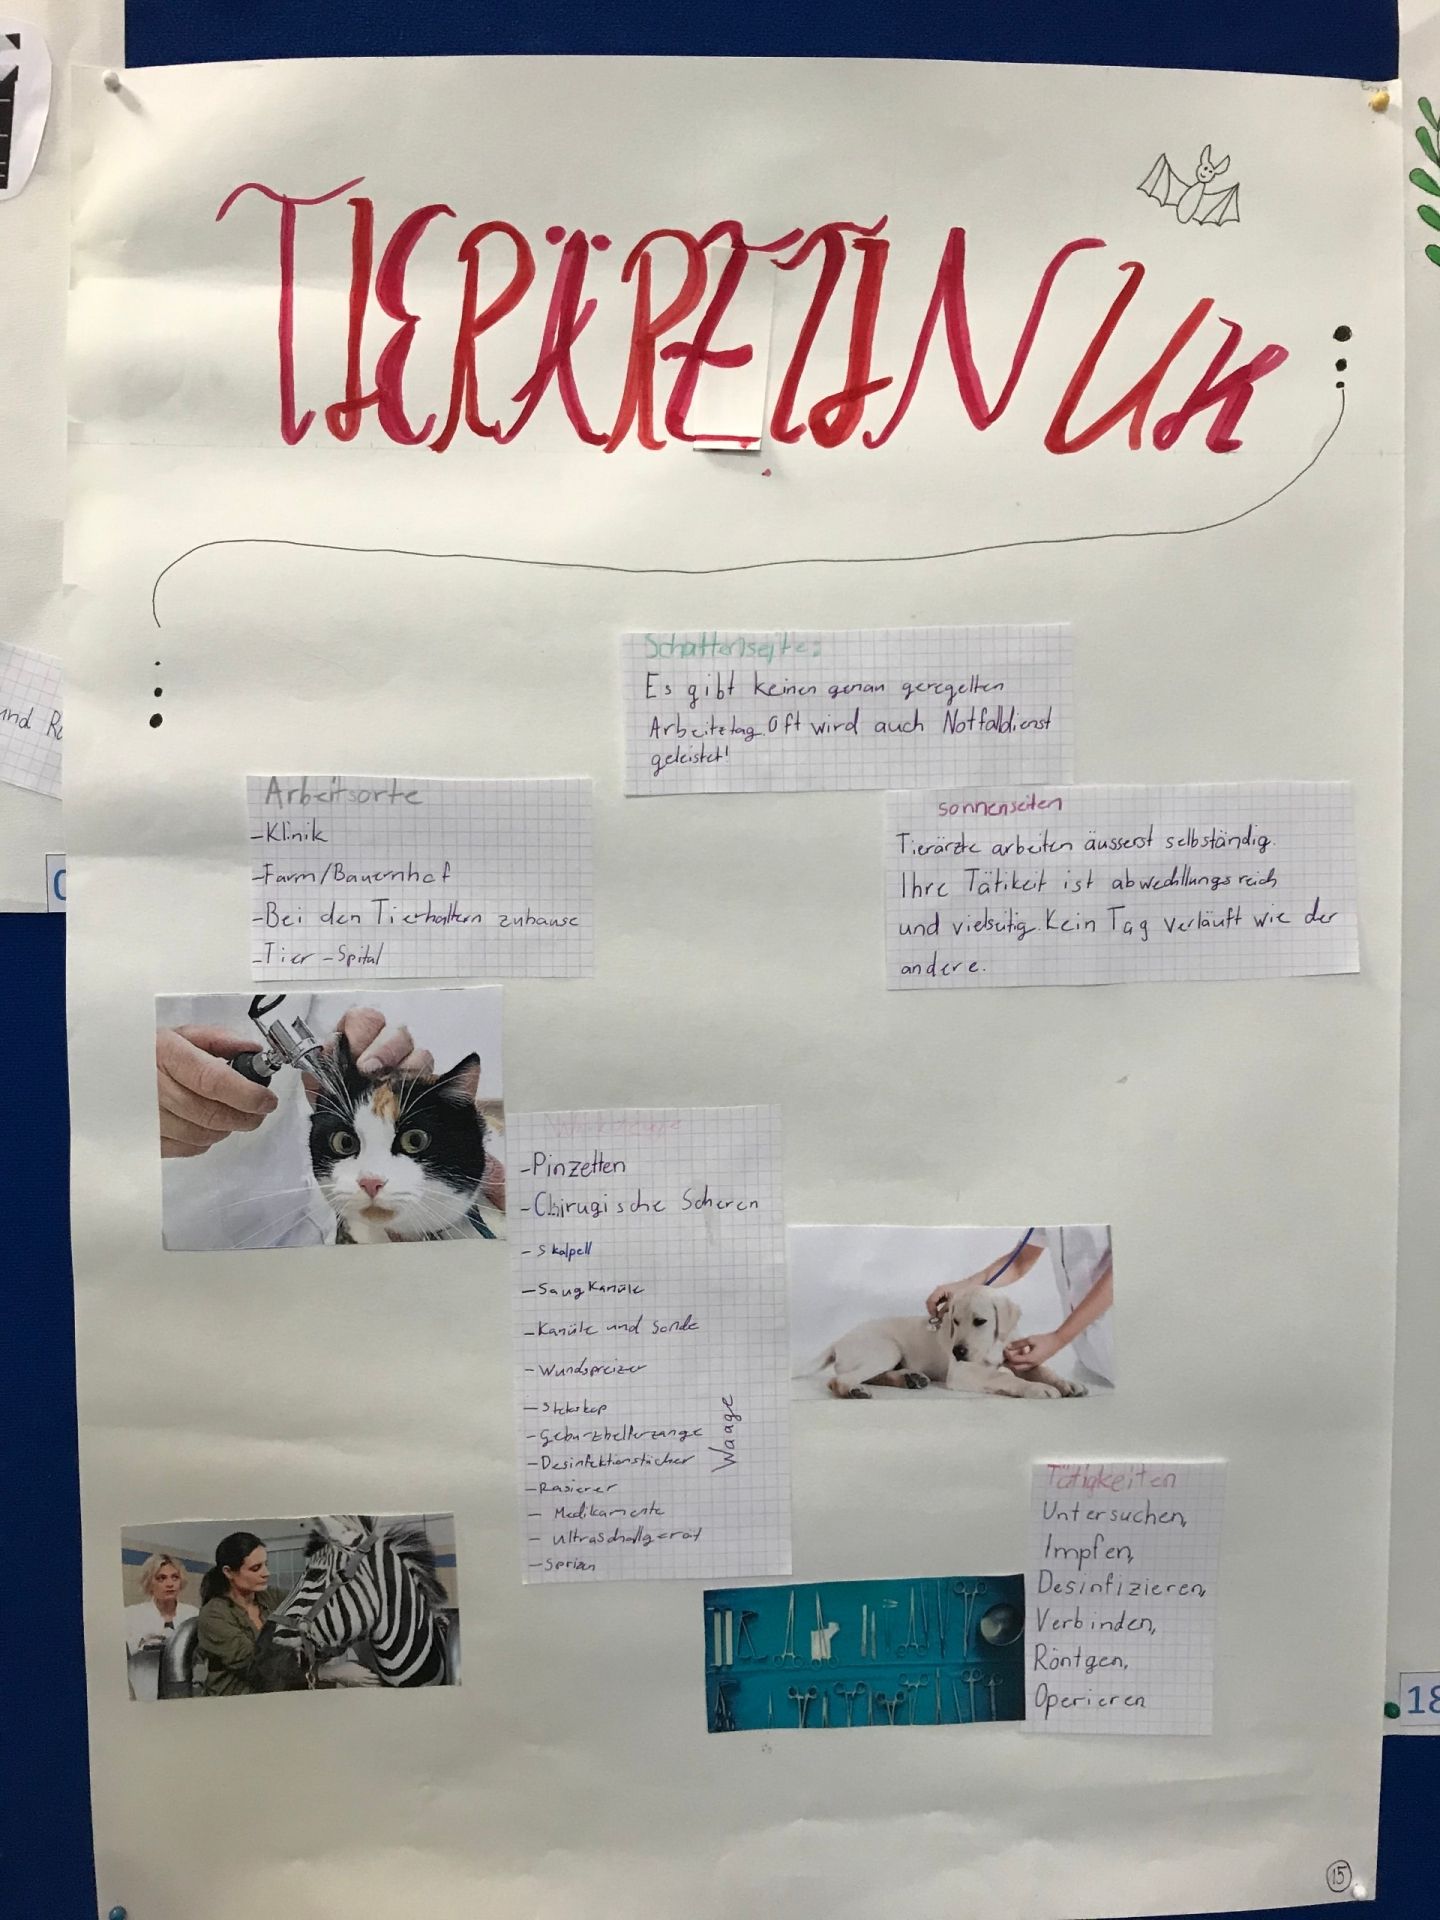 TIERÄRZTIN UK
Schattenseite:
Es gibt keinen genau geregelten
Arbeitztag. Oft wird auch Notfalldienst
geleistet!
Arbeitsorte
-Klinik
-Farm/Bauernhof
-Bei den Tierhaltern zuhause
-Tier-Spital
sonnenseiten
Tierärzte arbeiten äusserst selbständig.
Ihre Tätikeit ist abwechllungsreich
und vielseitig. Kein Tag verläuft wie der
andere.
Werkzeuge
-Pinzetten
-Chirugische Scheren
-Skalpell
-Saugkanüle
-Kanüle und Sonde
-Wundspreizer
-Stetoskop
-Geburzhelferzange
-Desinfektionstücher
-Rasierer
- Medikamente
- Ultraschallgerät
-Sprizen
Waage
Tätigkeiten
Untersuchen,
Impfen,
Desinfizieren,
Verbinden,
Röntgen,
Operieren
15
und
18